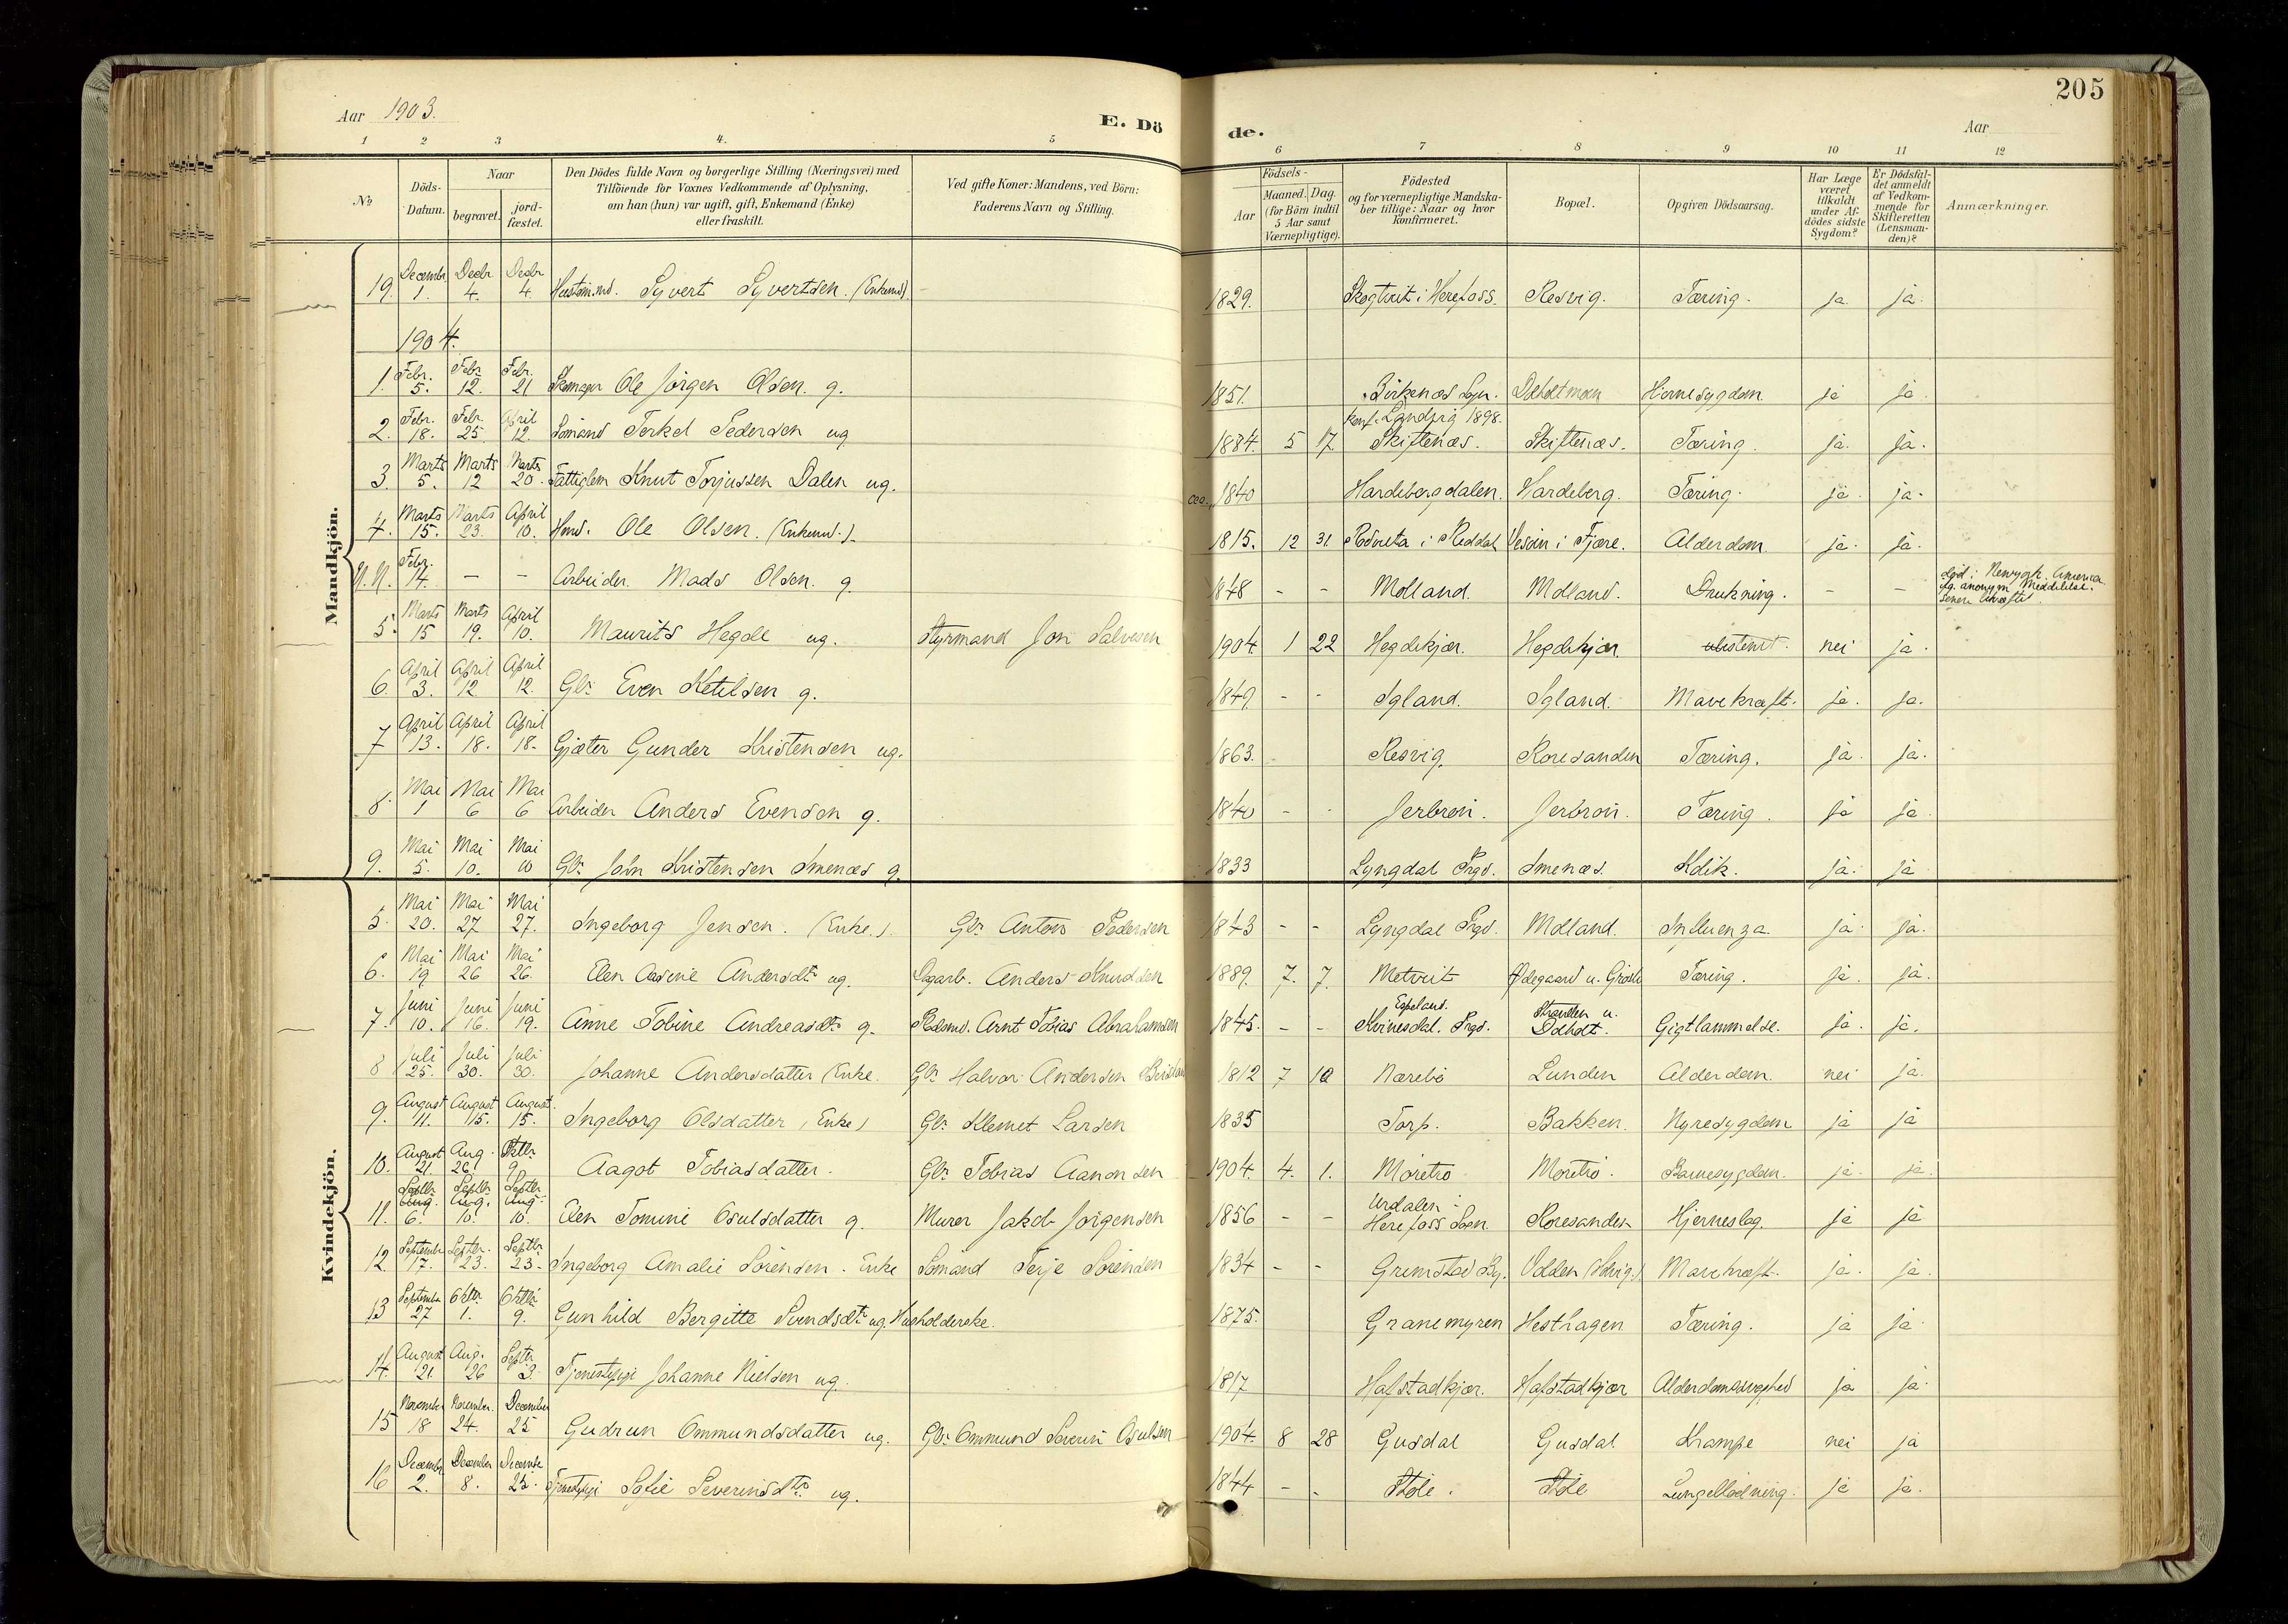 Aar 1903.
E. Dö
de.
205
Aar
1 2 3 4. 5 6 7 8 9 10 11 12
No
Döds-
Datum.
Naar
begravet.
jord-
fæstet.
Den Dödes fulde Navn og borgerlige Stilling (Næringsvei) med
Tilföiende for Voxnes Vedkommende af Oplysning,
om han (hun) var ugift, gift, Enkemand (Enke)
eller fraskilt.
Ved gifte Koner: Mandens, ved Börn:
Faderens Navn og Stilling.
Födsels-
Aar
Maaned. Dag.
(for Börn indtil
5 Aar samt
Værnepligtige).
Födested
og for værnepligtige Mandska-
ber tillige: Naar og hvor
konfirmeret.
Bopæl.
Opgiven Dödsaarsag.
Har Læge
været
tilkaldt
under Af-
dödes sidste
Sygdom?
Er Dödsfal-
det anmeldt
af Vedkom-
mende for
Skifteretten
(Lensman-
den)?
Anmærkninger.
Mandkjön.
19. Decembr 1. Decbr 4. Decbr 4. Syvert Syvertsen. (Enkemd). 1829. Herefoss. Resvig. Tæring. ja ja.
1904.
1. Febr. 5. Febr 12. Febr. 21 Ole Jörgen Olsen. g. 1851. Birkenæs Sogn. Hjernesygdom ja ja.
konf. Landvig 1898.
2. Febr. 18. Febr. 25. April 12. Sömand Terkel Pedersen ug 1884. 5 17 Skiftenæs. Skiftenæs. Tæring. ja. ja.
3. Marts 5. Marts 12 Marts 20. Fattiglem Knut Torjussen Dalen ug. 1840 Hardebergdalen. Hardeberg. Tæring. ja. ja.
4. Marts 15. Marts 23. April 10. Ole Olsen. (Enkemd.). 1815. 12 31 i Reddal i Fjære. Alderdom. ja. ja.
N.N. Febr. 14. – – Arbeider. Mads Olsen. g. 1848 - - Molland. Molland. Drukning. - - död i Newyork. America
anonym Meddelelse.
5. Marts 15 Marts 19. April 10. Maurits Hegde ug. Styrmand Jon Salvesen 1904. 1 22 Hegdekjær. Hegdekjær. nei ja.
6. April 3. April 12 April 12. Gbr. Even Ketilsen g. 1849. - - Igland. Igland. Mavekræft. ja. ja.
7 April 13. April 18. April 18. Gjæter Gunder Kristensen ug. 1863. Resvig. Roresanden Tæring. ja. ja.
8. Mai 1 Mai 6 Mai 6 Arbeider Anders Evensen g. 1840 - - Jerbroni. Jerbroni. Tæring. ja ja.
9. Mai 5. Mai 10. Mai 10 Gbr. John Kristensen Smenæs g. 1833 Lyngdal Prgd. Smenæs. Kolik. ja. ja
Kvindekjön.
5. Mai 20. Mai 27 Mai 27. Ingeborg Jensen. (Enke.). Gbr. Anton Pedersen 1843 - - Lyngdal Prgd. Molland. Influenza. ja. ja.
6. Mai 19 Mai 26 Mai 26. Elen Aasine Andersdtr ug. Anders Knudsen 1889. 7. 7. Metveit Ødegaard u. Tæring. ja. ja.
7. Juni 10. Juni 16. Juni 19. Anne Tobine Andreasdtr g. Arnt Tobias Abrahamsen 1845. - - Egeland. Kvinesdal. Prgd. Dolholt. Gigtlammelse. ja. ja.
8 Juli 25. Juli 30. Juli 30. Johanne Andersdatter (Enke. Gbr. Halvor Andersen 1812 7 10 Nærebö Lunden Alderdom. nei ja.
9. August 11. August 15. August. 15. Ingeborg Olsdatter (Enke) Gbr. Klemet Larsen 1835 Torp. Bakken. Nyresygdom ja ja
10. August 21. Aug. 26. Oktbr 9. Aagot Tobiasdatter. Gbr. Tobias Aanonsen 1904. 4. 1. Möretrö Möretrö. Barnesygdom. ja. ja.
11. Septbr. Aug. 6. Septbr. Aug. 10. Septbr Aug. 10. Elen Tomine Osulsdatter g. Murer Jakob Jörgensen 1856 - - Urdalen - Herefoss Sogn Roresanden Hjerneslag. ja ja
12. Septembr 17. Septbr. 23. Septbr 23. Ingeborg Amalie Sörensen. Enke Sömand Terje Sörensen 1834 - - Grimstad By. Mavekræft. ja. ja.
13 Septembr 27 Oktbr 1. Oktbr 9. Gunhild Bergitte Svendsdtr ug. Husholderske. 1875. Granemyren Hesthagen Tæring. ja ja.
14. August 21. Aug. 26 Septbr 3. Tjenestepige Johanne Nielsen ug. 1817 Hafstadkjær. Hafstadkjær ja ja.
15 November 18 November. 24. December 25 Gudrun Ommundsdatter ug. Gbr. Ommund Severin Osulsen 1904. 8 28 Gusdal Gusdal. Krampe nei ja
16 December 2. December 8. December 25. Tjenestepige Sofie Severinsdtr ug. 1844 - - Stöle. Stöle Lungeblödning. ja ja.